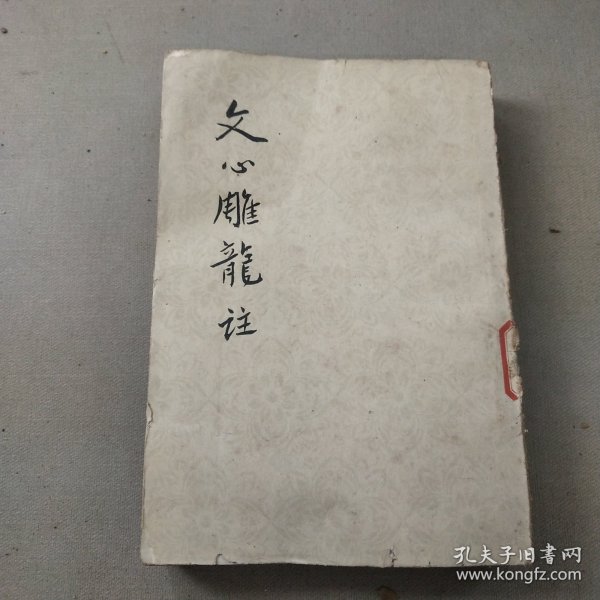 文心雕龍註
孔夫子旧書网
www.kongfz.com